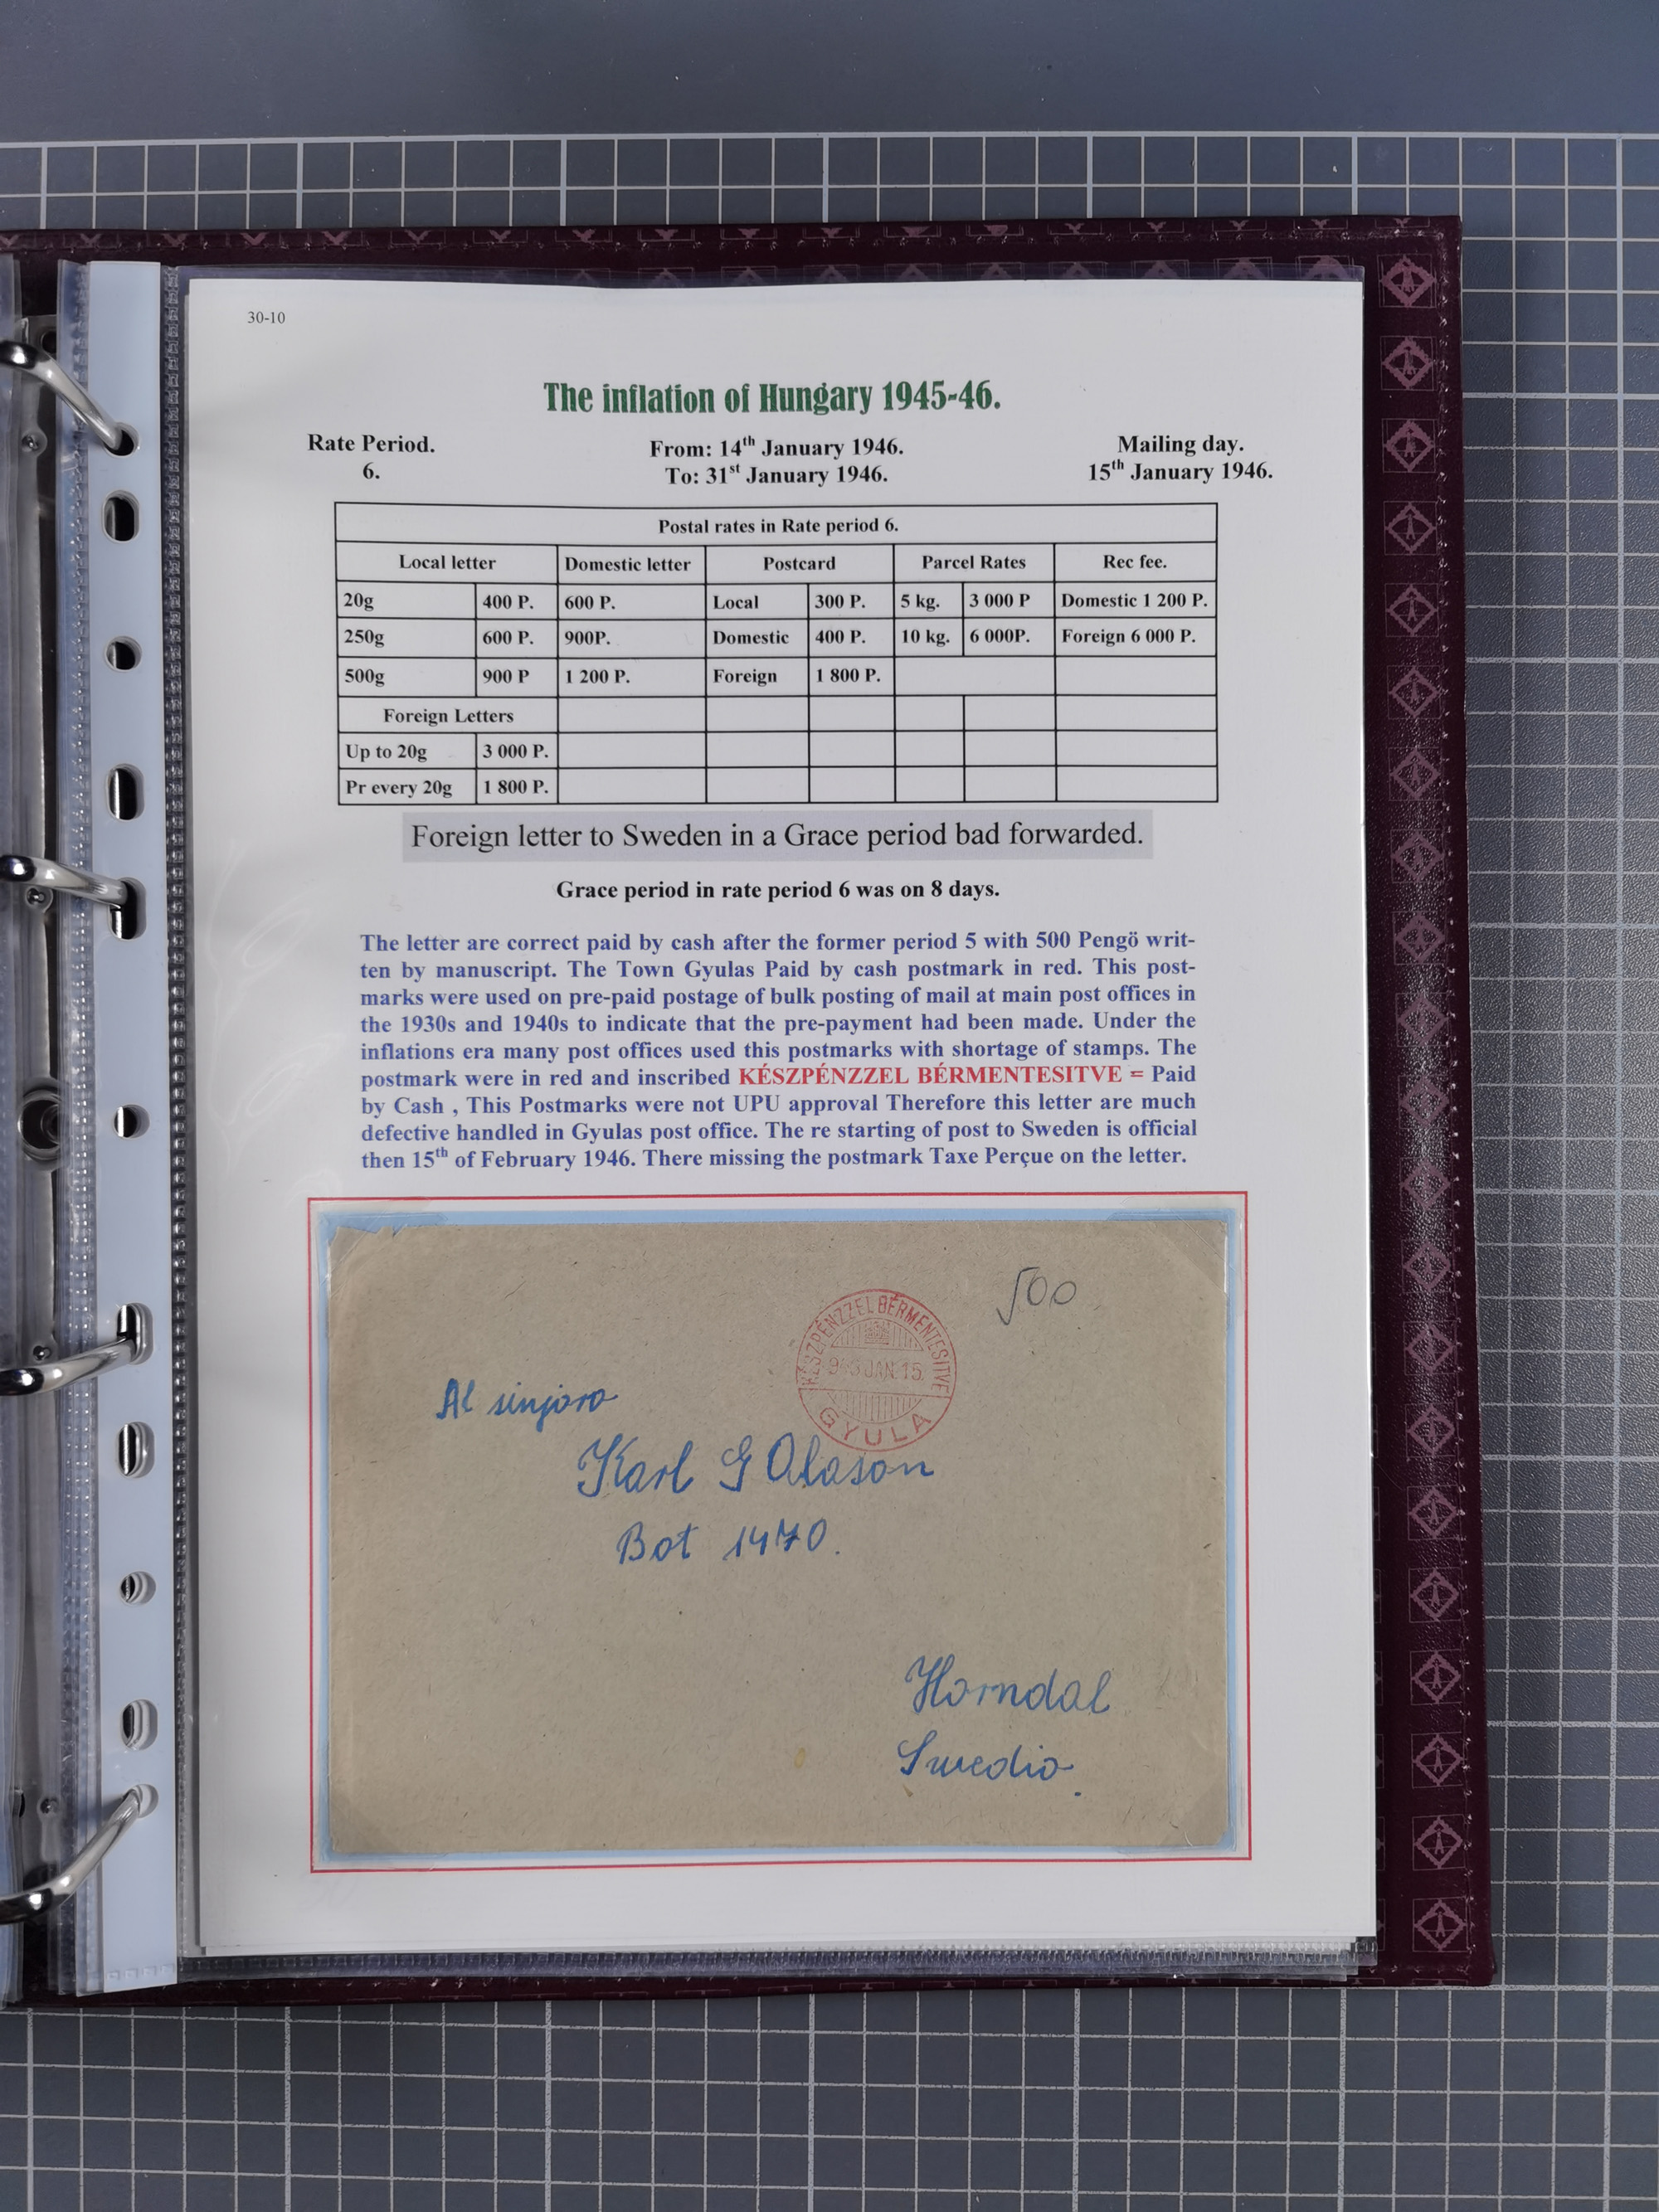 30-10
The inflation of Hungary 1945-46.
Rate Period.
6.
From: 14th January 1946.
To: 31st January 1946.
Mailing day.
15th January 1946.
Postal rates in Rate period 6.
Local letter Domestic letter Postcard Parcel Rates Rec fee.
20g 400 P. 600 P. Local 300 P. 5 kg. 3 000 P Domestic 1 200 P.
250g 600 P. 900P. Domestic 400 P. 10 kg. 6 000P. Foreign 6 000 P.
500g 900 P 1 200 P. Foreign 1 800 P.
Foreign Letters
Up to 20g 3 000 P.
Pr every 20g 1 800 P.
Foreign letter to Sweden in a Grace period bad forwarded.
Grace period in rate period 6 was on 8 days.
The letter are correct paid by cash after the former period 5 with 500 Pengö writ-
ten by manuscript. The Town Gyulas Paid by cash postmark in red. This post-
marks were used on pre-paid postage of bulk posting of mail at main post offices in
the 1930s and 1940s to indicate that the pre-payment had been made. Under the
inflations era many post offices used this postmarks with shortage of stamps. The
postmark were in red and inscribed KÉSZPÉNZZEL BÉRMENTESITVE = Paid
by Cash , This Postmarks were not UPU approval Therefore this letter are much
defective handled in Gyulas post office. The re starting of post to Sweden is official
then 15th of February 1946. There missing the postmark Taxe Perçue on the letter.
500
KÉSZPÉNZZEL BÉRMENTESITVE
JAN. 15.
GYULA
Al sinjoro
Karl G Olason
Bot 1470.
Horndal
Swedio